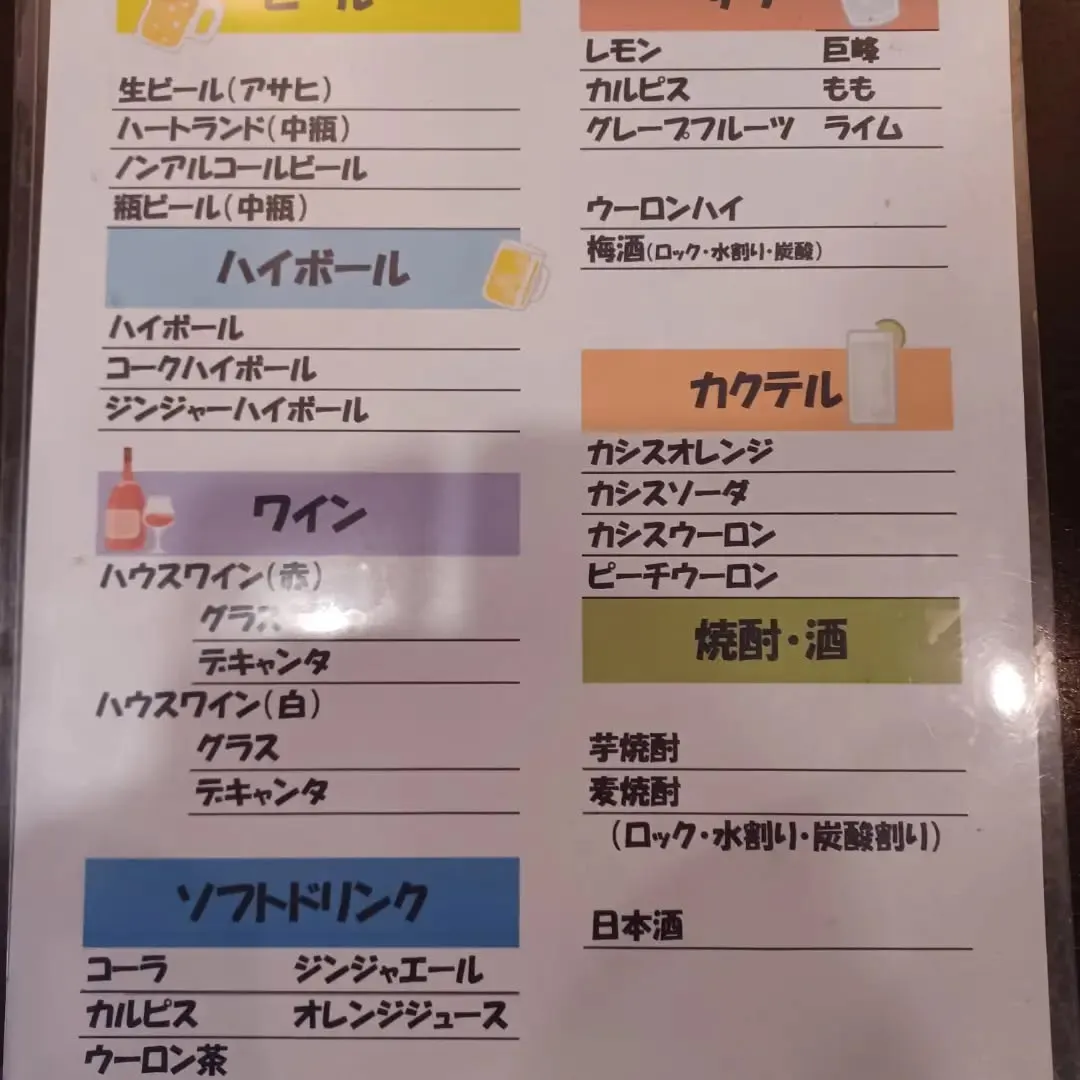 ビール
生ビール(アサヒ)
ハートランド(中瓶)
ノンアルコールビール
瓶ビール(中瓶)
ハイボール
ハイボール
コークハイボール
ジンジャーハイボール
ワイン
ハウスワイン(赤)
グラス
デキャンタ
ハウスワイン(白)
グラス
デキャンタ
ソフトドリンク
コーラ ジンジャエール
カルピス オレンジジュース
ウーロン茶
サワー
レモン 巨峰
カルピス もも
グレープフルーツ ライム
ウーロンハイ
梅酒(ロック・水割り・炭酸)
カクテル
カシスオレンジ
カシスソーダ
カシスウーロン
ピーチウーロン
焼酎・酒
芋焼酎
麦焼酎
(ロック・水割り・炭酸割り)
日本酒